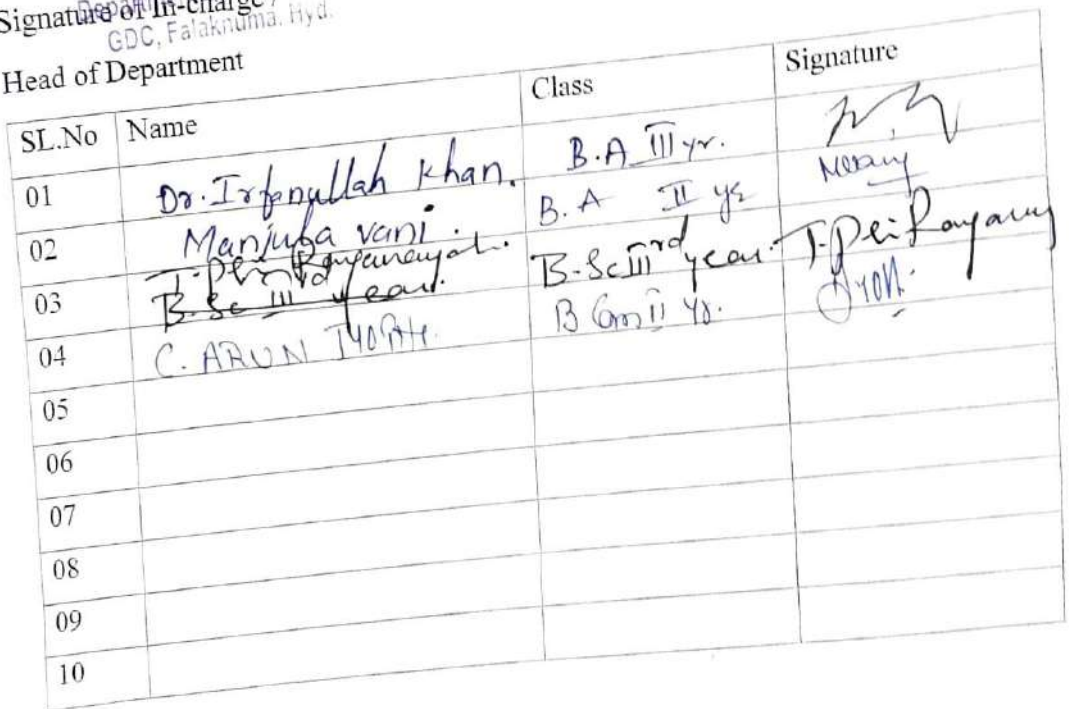 Signature of In-charge /
GDC, Falaknuma. Hyd.
Head of Department
SL.No Name Class Signature
01 Dr. Irfanullah Khan. B.A III yr.
02 Manjula vani. B.A II yr
03 B.Sc III year. B.Sc IIIrd year.
04 C. ARUN JYOTHI. B Com II yr.
05
06
07
08
09
10